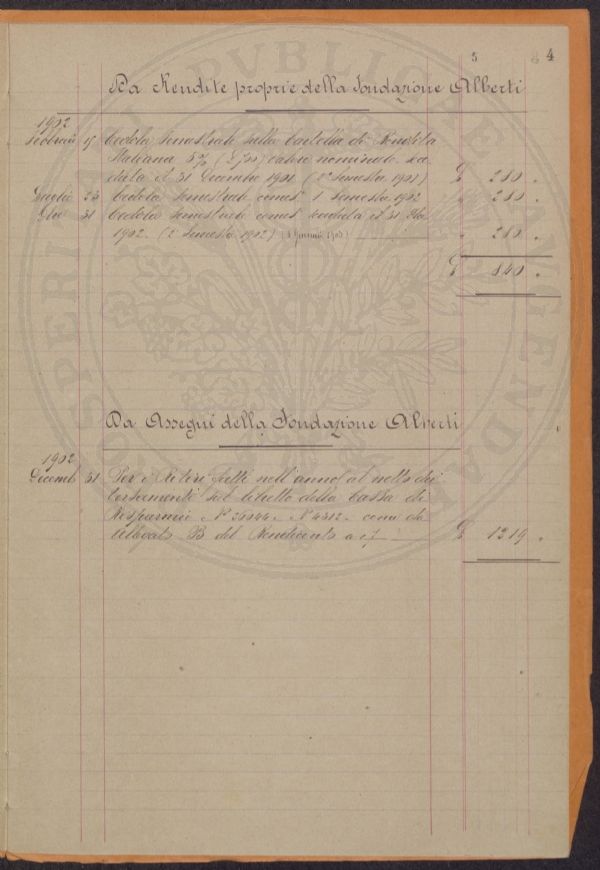 3 4
Da Rendite proprie della Fondazione Alberti
1902
Febbraio 15 Cedola Semestrale sulla Cartella di Rendita
Italiana 5% ( valore nominale sca
duta il 31 Decembre 1901 (2° Semestre 1901) £ 280 "
Luglio 23 Cedola Semestrale come s. 1 Semestre 1902 " 280 "
31 Cedola Semestrale come s. scaduta il 31
1902. (2° Semestre 1902) (8 Gennaio 1903) " 280 "
£ 840 "
Da Assegni della Fondazione Alberti
1902
Decemb 31 Per i Ritiri fatti nell'anno al netto dei
Versamenti sul libretto della Cassa di
Risparmio N° 26044. N° 4312. come da
Allegato B del Rendiconto a £ 1219 "
PUBLICAE
PROSPERITATI AUGENDAE